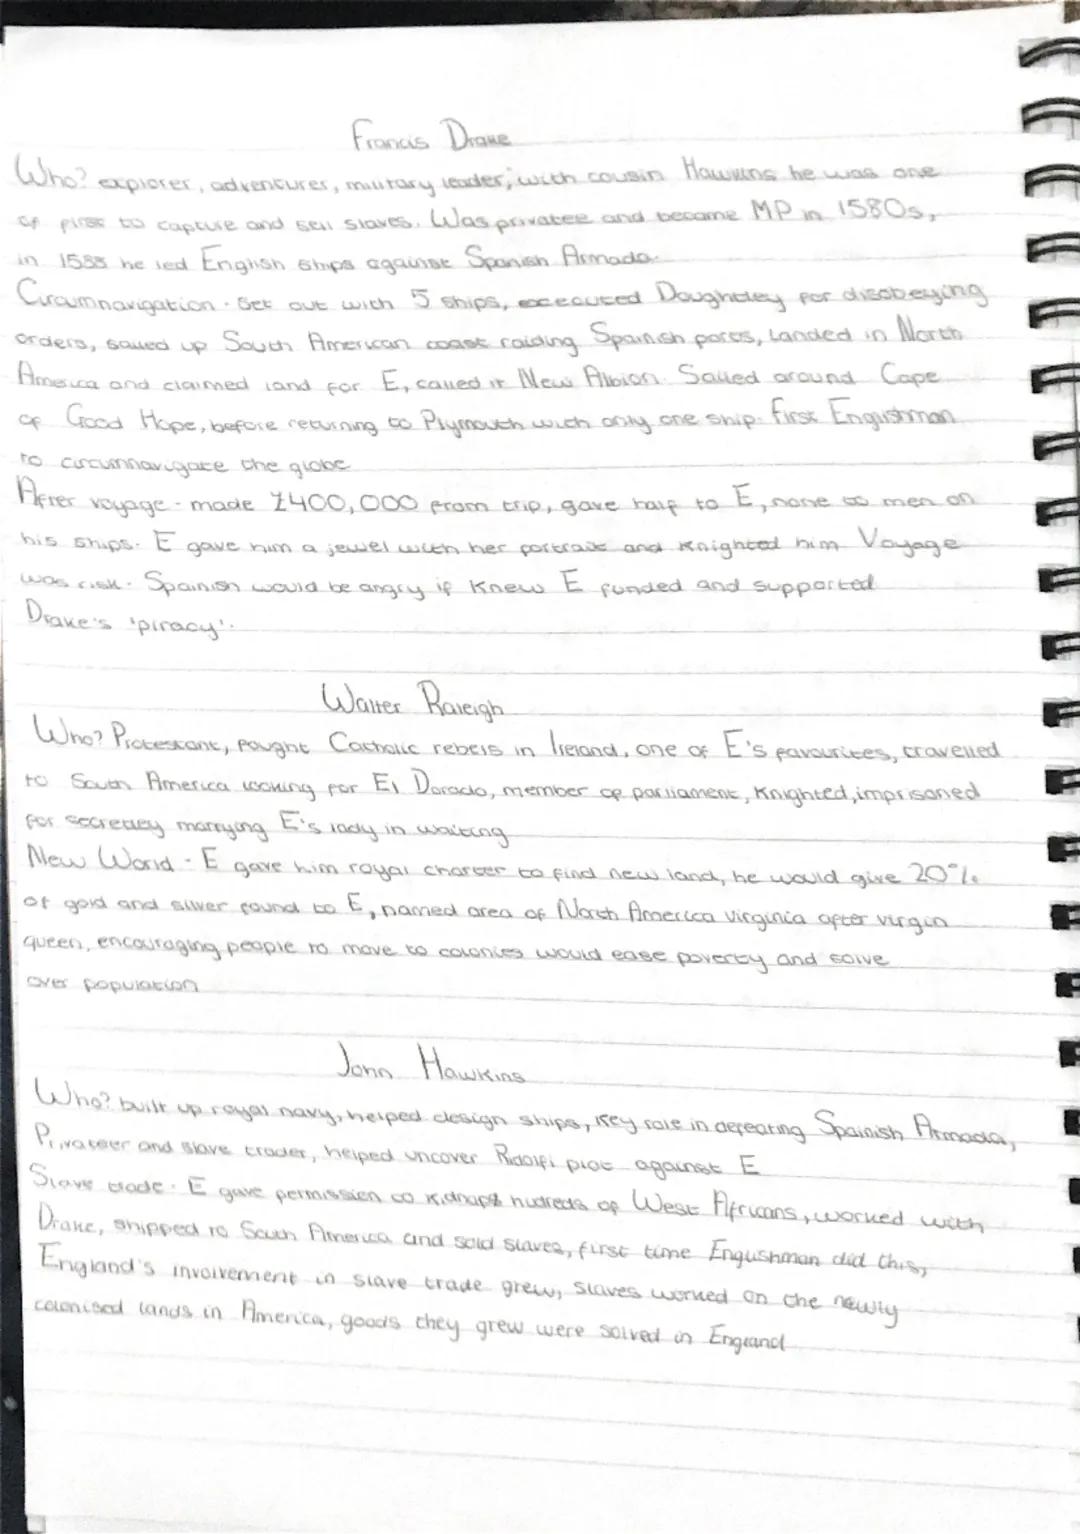 Francis Drake
Who? explorer, adventurer, military leader, with cousin Hawkins he was one
of first to capture and sell slaves. Was privatee and become MP in 1580s,
in 1588 he led English ships against Spanish Armada.
Circumnavigation - Set out with 5 ships, excecuted Doughtley for disobeying
orders, sailed up South American coast raiding Spainish ports, Landed in North
America and claimed land for E, called it New Albion. Sailed around Cape
of Good Hope, before returning to Plymouth with only one ship. First Englishman
to circumnavigate the globe
After voyage - made £400,000 from trip, gave half to E, none to men on
his ships. E gave him a jewel with her portrait and knighted him. Voyage
was risk. Spainish would be angry if knew E funded and supported
Drake's 'piracy'.
Walter Raleigh
Who? Protestant, fought Catholic rebels in Ireland, one of E's favourites, travelled
to South America looking for El Dorado, member of parliament, knighted, imprisoned
for secretley marrying E's lady in waiting
New World - E gave him royal charter to find new land, he would give 20%
of gold and silver found to E, named area of North America virginia after virgin
queen, encouraging people to move to colonies would ease poverty and solve
over population
John Hawkins
Who? built up royal navy, helped design ships, key role in defeating Spainish Armada,
Privateer and slave trader, helped uncover Ridolfi plot against E
Slave trade - E gave permission to kidnap hudreds of West Africans, worked with
Drake, shipped to South America and sold slaves, first time Englishman did this,
England's involvement in slave trade grew, slaves worked on the newly
colonised lands in America, goods they grew were solved in England